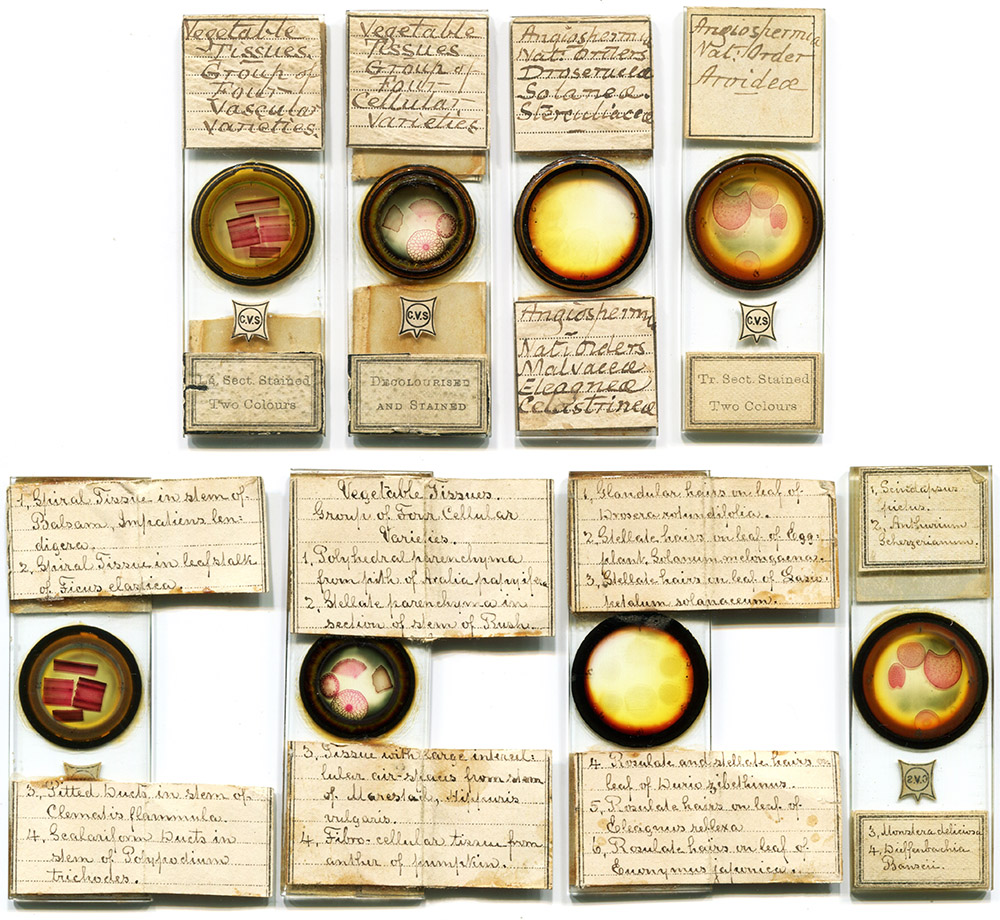 Vegetable
Tissues
Group of
Four
Vascular
Varieties.
C.V.S
Lg. Sect. Stained
Two Colours
Vegetable
Tissues
Group of
Four
Cellular
Varieties
C.V.S
Decolourised
and Stained
Angiospermia
Nat. Orders
Droseraceæ
Solaneæ
Sterculiaceæ
Angiospermia
Nat. Orders
Malvaceæ
Eleagneæ
Celastrineæ
Angiospermia
Nat. Order
Aroideæ
C.V.S
Tr. Sect. Stained
Two Colours
1, Spiral Tissue in stem of
Balsam, Impatiens len-
digera.
2, Spiral Tissue in leafstalk
of Ficus elastica.
3, Pitted Ducts in stem of
Clematis flammula.
4, Scalariform Ducts in
stem of Polypodium
trichodes.
Vegetable Tissues.
Group of Four Cellular
Varieties.
1, Polyhedral parenchyma
from pith of Aralia papyifera
2, Stellate parenchyma in
section of stem of Rush.
3, Tissue with large intercel-
lular air-spaces from stem
of Marestail, Hippuris
vulgaris.
4, Fibro-cellular tissue from
anther of pumpkin.
1, Glandular hairs on leaf of
Drosera rotundifolia.
2, Stellate hairs on leaf of Egg-
plant Solanum melongaenas.
3, Stellate hairs on leaf of Lasio-
petalum solanaceum.
4. Rosulate and stellate hairs on
leaf of Durio zibethinus.
5. Rosulate hairs on leaf of
Eleagnus reflexa
6, Rosulate hairs on leaf of
Euonymus japonica.
1, Scindapsus
pictus.
2, Anthurium
Scherzerianum.
C.V.S
3, Monstera deliciosa
4, Dieffenbachia
Bausei.